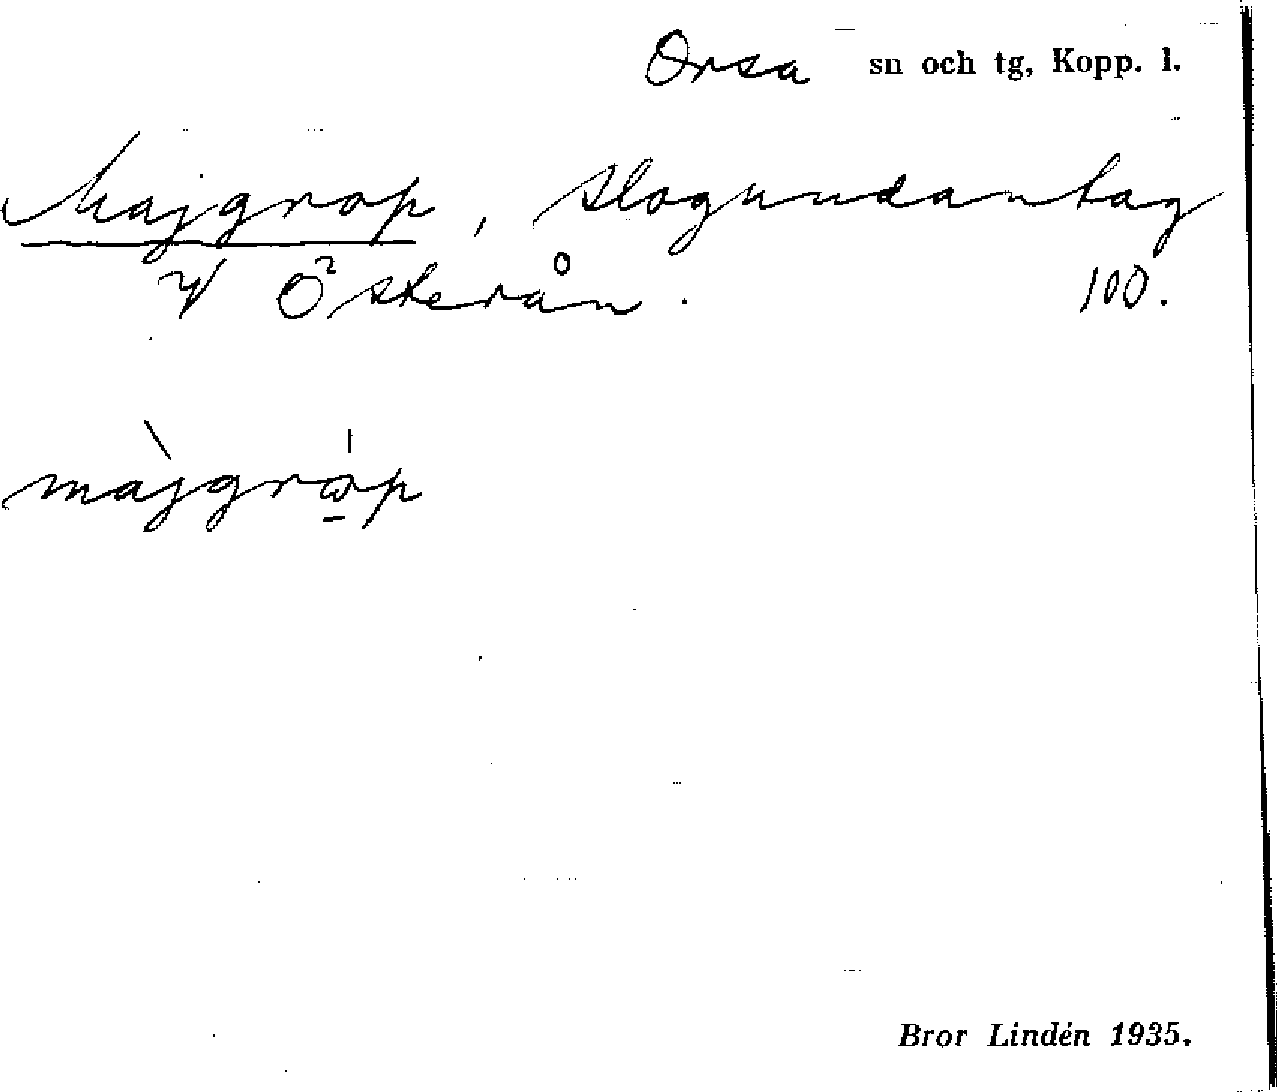 Orsa sn och tg, Kopp. l.
Majgrop, slogundantag
v Österån. 100.
màjgrω̲p
Bror Lindén 1935.